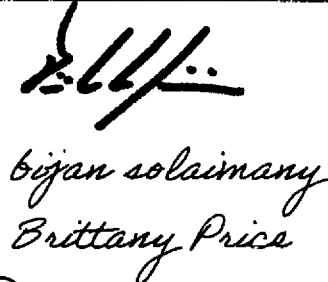 bijan solaimany
Brittany Price